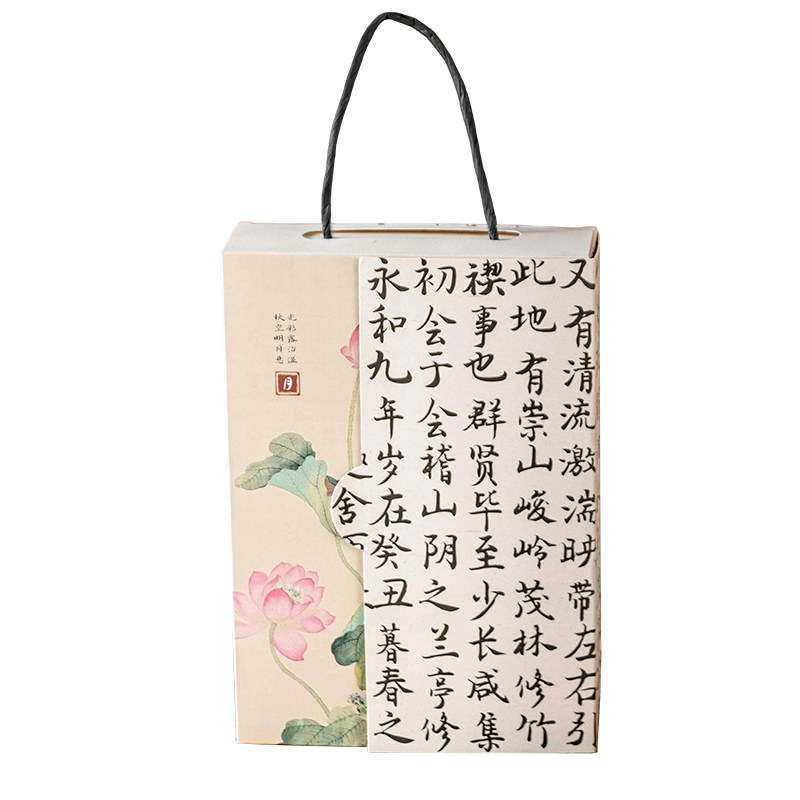 秋空明月悬
光彩露沾湿
月
舍
永和九年岁在癸丑暮春之
初会于会稽山阴之兰亭修
禊事也群贤毕至少长咸集
此地有崇山峻岭茂林修竹
又有清流激湍映带左右引